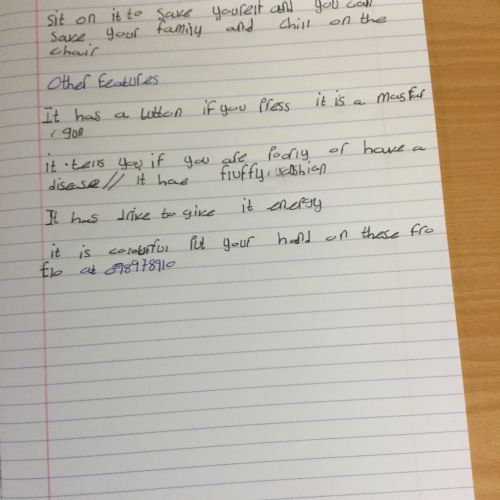 sit on it to save yourself and you can
save your family and chill on the
chair
Other features
It has a button if you press it is a
it tells you if you are poorly or have a
disease // it has fluffy
It has drike to give it energy
it is colourful Put your hand on these fro
at 098978910